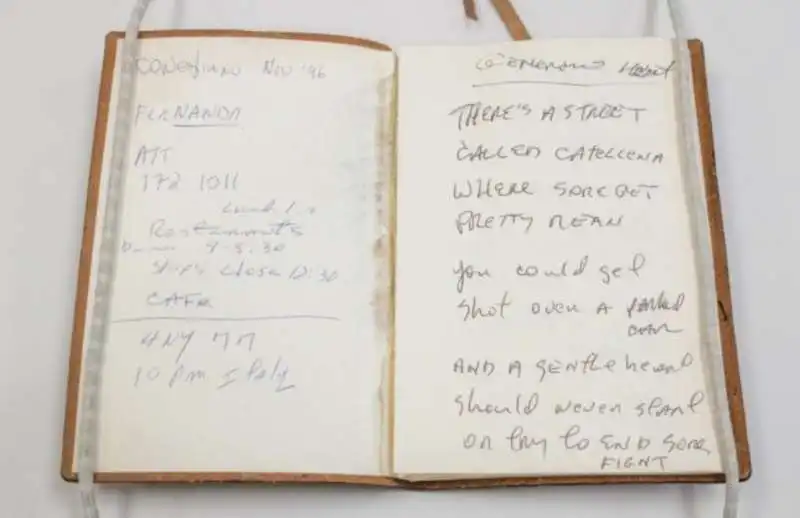 CONEGLIANO NOV '96
FERNANDA
ATT
172 1011
Lunch 1
Restaurants
9-5.30
Shops close 12:30
CAFE
4 NY
10 pm Italy
GENEROUS HEART
THERE'S A STREET
CALLED CATELLENA
WHERE SOME GET
PRETTY MEAN
You could get
Shot over a parked
car
AND A GENTLE heart
should never start
or try to END SOME
FIGHT